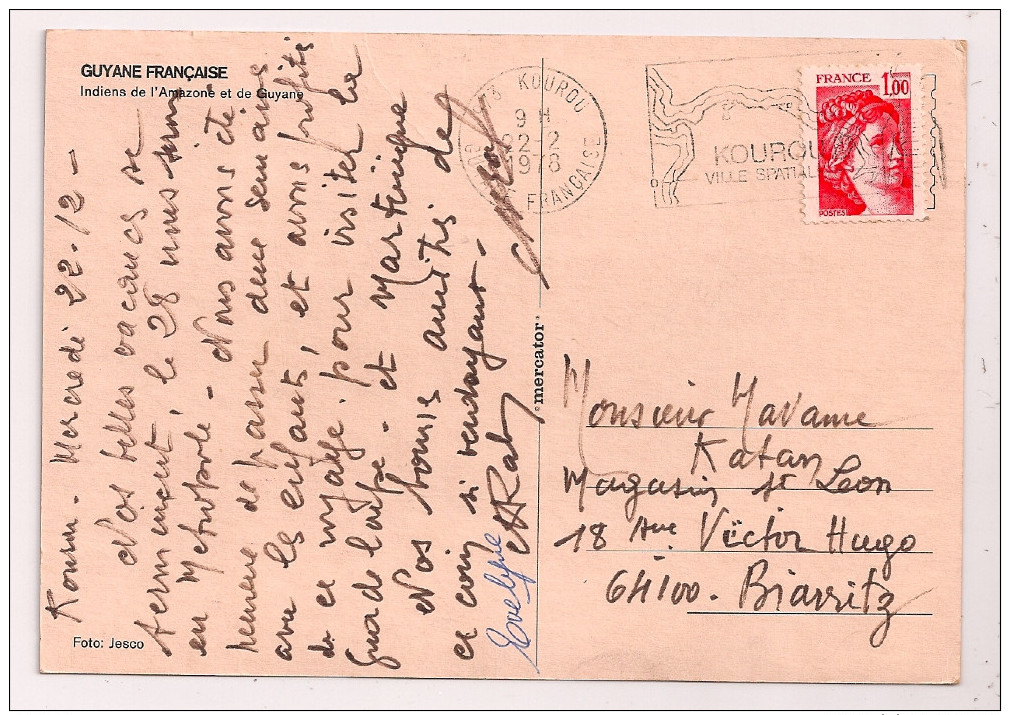 GUYANE FRANÇAISE
Indiens de l'Amazone et de Guyane
Kourou - Mercredi 22-12 -
Nos belles vacances se
terminent, le 28 nous serons
en Metropole - Nous avons été
heureux de passer deux semaines
avec les enfants, et avons profité
de ce voyage pour visiter la
Guadeloupe - et Martinique
Nos bonnes amitiés de
ce coin si verdoyant -
Evelyne
mercator
Foto: Jesco
KOUROU
9 H
22-2
1978
FRANÇAISE
KOUROU
VILLE SPATIALE
FRANCE 1,00
POSTES
Monsieur Madame
Katan
Magasin St Leon
18 Ave Victor Hugo
64100 - Biarritz